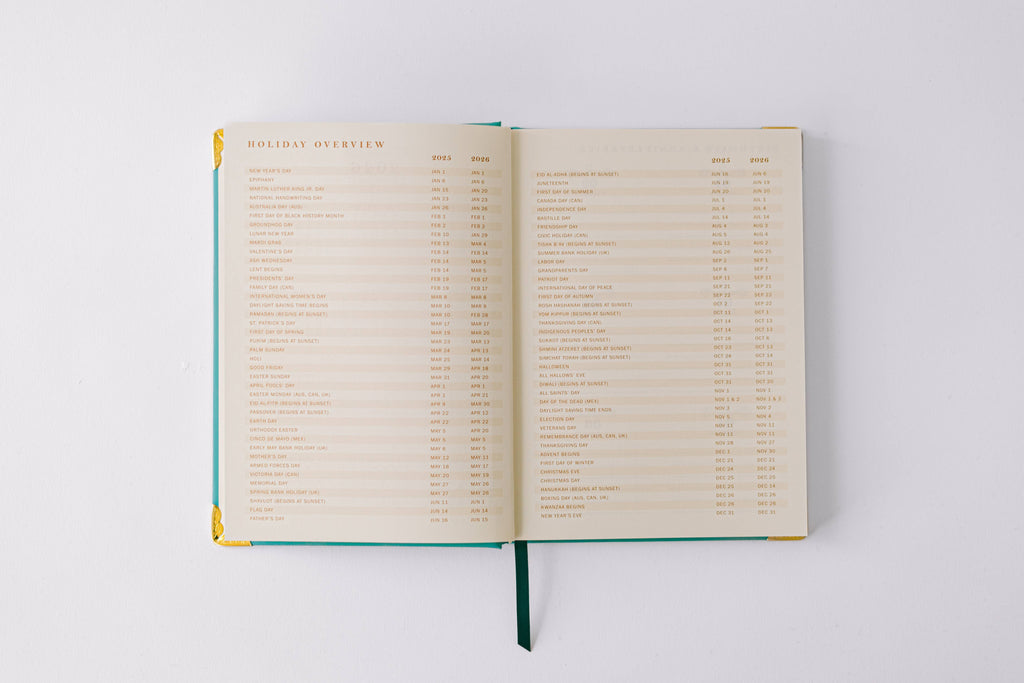 HOLIDAY OVERVIEW
2025 2026
NEW YEAR'S DAY JAN 1 JAN 1
EPIPHANY JAN 6 JAN 6
MARTIN LUTHER KING JR. DAY JAN 15 JAN 20
NATIONAL HANDWRITING DAY JAN 23 JAN 23
AUSTRALIA DAY (AUS) JAN 26 JAN 26
FIRST DAY OF BLACK HISTORY MONTH FEB 1 FEB 1
GROUNDHOG DAY FEB 2 FEB 2
LUNAR NEW YEAR FEB 10 JAN 29
MARDI GRAS FEB 13 MAR 4
VALENTINE'S DAY FEB 14 FEB 14
ASH WEDNESDAY FEB 14 MAR 5
LENT BEGINS FEB 14 MAR 5
PRESIDENTS' DAY FEB 19 FEB 17
FAMILY DAY (CAN) FEB 19 FEB 17
INTERNATIONAL WOMEN'S DAY MAR 8 MAR 8
DAYLIGHT SAVING TIME BEGINS MAR 10 MAR 9
RAMADAN (BEGINS AT SUNSET) MAR 10 FEB 28
ST. PATRICK'S DAY MAR 17 MAR 17
FIRST DAY OF SPRING MAR 19 MAR 20
PURIM (BEGINS AT SUNSET) MAR 23 MAR 13
PALM SUNDAY MAR 24 APR 13
HOLI MAR 25 MAR 14
GOOD FRIDAY MAR 29 APR 18
EASTER SUNDAY MAR 31 APR 20
APRIL FOOLS' DAY APR 1 APR 1
EASTER MONDAY (AUS, CAN, UK) APR 1 APR 21
EID AL-FITR (BEGINS AT SUNSET) APR 9 MAR 30
PASSOVER (BEGINS AT SUNSET) APR 22 APR 12
EARTH DAY APR 22 APR 22
ORTHODOX EASTER MAY 5 APR 20
CINCO DE MAYO (MEX) MAY 5 MAY 5
EARLY MAY BANK HOLIDAY (UK) MAY 6 MAY 5
MOTHER'S DAY MAY 12 MAY 11
ARMED FORCES DAY MAY 18 MAY 17
VICTORIA DAY (CAN) MAY 20 MAY 19
MEMORIAL DAY MAY 27 MAY 26
SPRING BANK HOLIDAY (UK) MAY 27 MAY 26
SHAVUOT (BEGINS AT SUNSET) JUN 11 JUN 1
FLAG DAY JUN 14 JUN 14
FATHER'S DAY JUN 16 JUN 15
2025 2026
EID AL-ADHA (BEGINS AT SUNSET) JUN 16 JUN 6
JUNETEENTH JUN 19 JUN 19
FIRST DAY OF SUMMER JUN 20 JUN 20
CANADA DAY (CAN) JUL 1 JUL 1
INDEPENDENCE DAY JUL 4 JUL 4
BASTILLE DAY JUL 14 JUL 14
FRIENDSHIP DAY AUG 4 AUG 3
CIVIC HOLIDAY (CAN) AUG 5 AUG 4
TISHA B'AV (BEGINS AT SUNSET) AUG 12 AUG 2
SUMMER BANK HOLIDAY (UK) AUG 26 AUG 25
LABOR DAY SEP 2 SEP 1
GRANDPARENTS DAY SEP 8 SEP 7
PATRIOT DAY SEP 11 SEP 11
INTERNATIONAL DAY OF PEACE SEP 21 SEP 21
FIRST DAY OF AUTUMN SEP 22 SEP 22
ROSH HASHANAH (BEGINS AT SUNSET) OCT 2 SEP 22
YOM KIPPUR (BEGINS AT SUNSET) OCT 11 OCT 1
THANKSGIVING DAY (CAN) OCT 14 OCT 13
INDIGENOUS PEOPLES' DAY OCT 14 OCT 13
SUKKOT (BEGINS AT SUNSET) OCT 16 OCT 6
SHMINI ATZERET (BEGINS AT SUNSET) OCT 23 OCT 13
SIMCHAT TORAH (BEGINS AT SUNSET) OCT 24 OCT 14
HALLOWEEN OCT 31 OCT 31
ALL HALLOWS' EVE OCT 31 OCT 31
DIWALI (BEGINS AT SUNSET) OCT 31 OCT 20
ALL SAINTS' DAY NOV 1 NOV 1
DAY OF THE DEAD (MEX) NOV 1 & 2 NOV 1 & 2
DAYLIGHT SAVING TIME ENDS NOV 3 NOV 2
ELECTION DAY NOV 5 NOV 4
VETERANS DAY NOV 11 NOV 11
REMEMBRANCE DAY (AUS, CAN, UK) NOV 11 NOV 11
THANKSGIVING DAY NOV 28 NOV 27
ADVENT BEGINS DEC 1 NOV 30
FIRST DAY OF WINTER DEC 21 DEC 21
CHRISTMAS EVE DEC 24 DEC 24
CHRISTMAS DAY DEC 25 DEC 25
HANUKKAH (BEGINS AT SUNSET) DEC 25 DEC 14
BOXING DAY (AUS, CAN, UK) DEC 26 DEC 26
KWANZAA BEGINS DEC 26 DEC 26
NEW YEAR'S EVE DEC 31 DEC 31